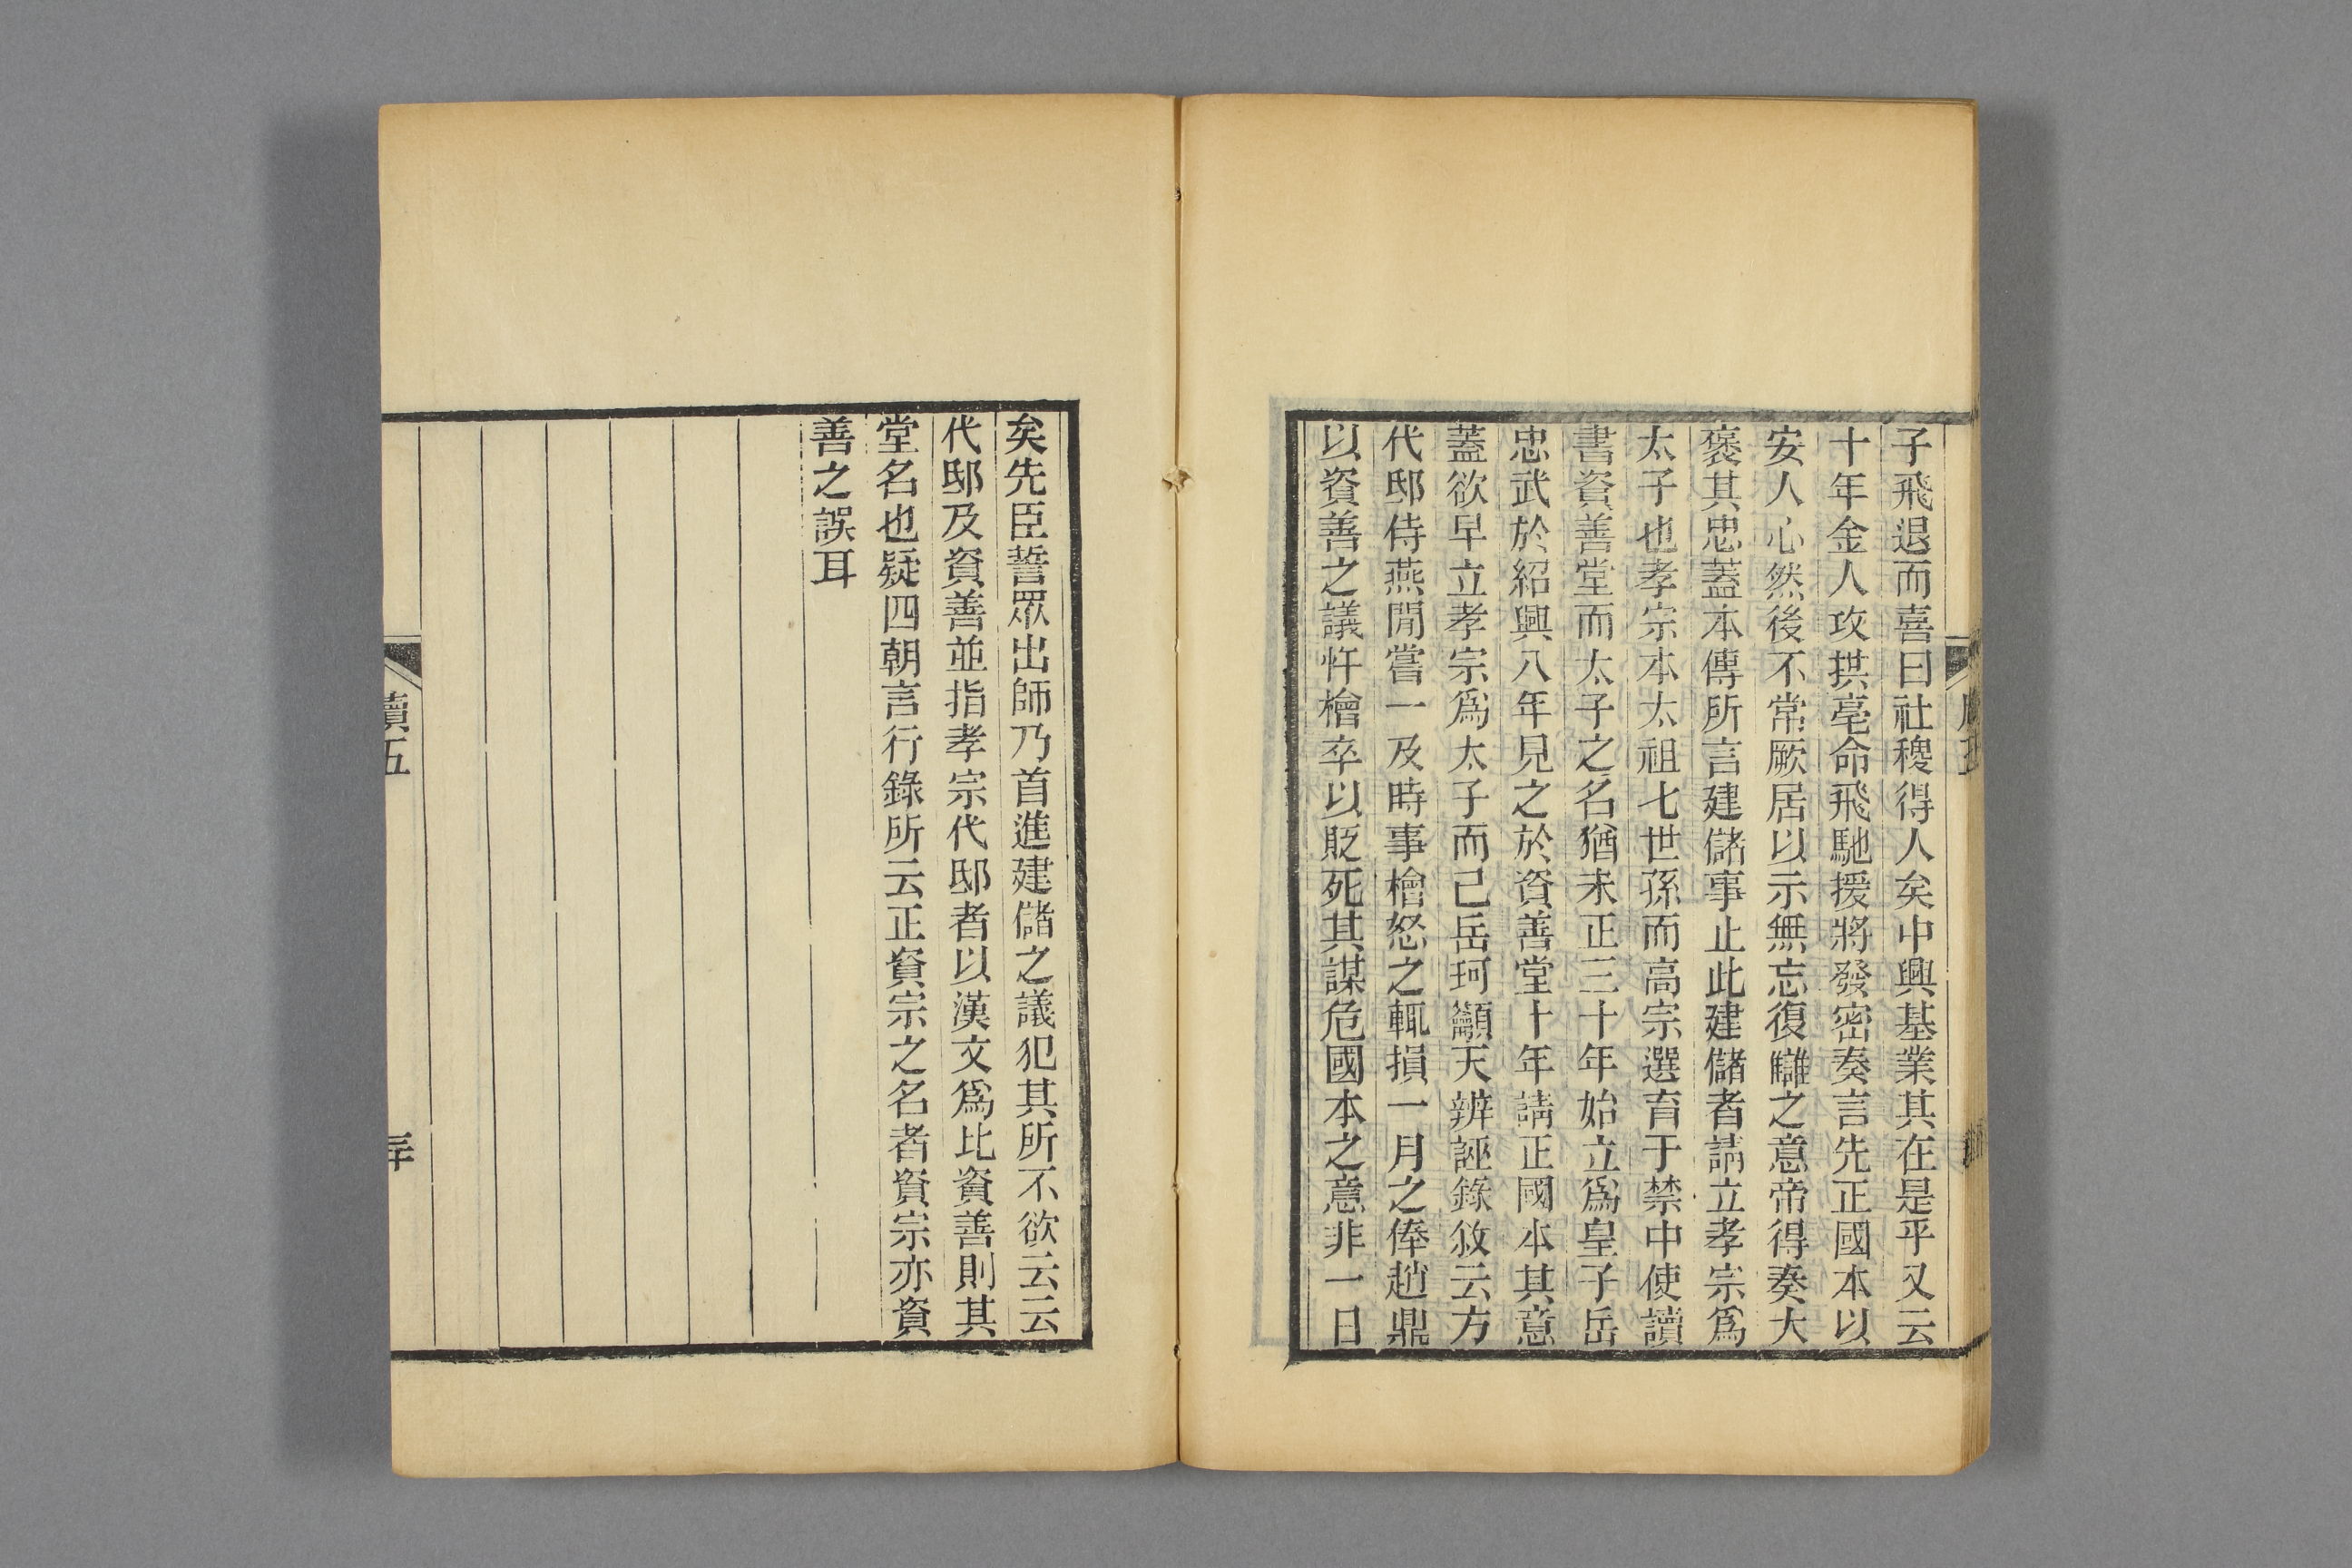 子飛退而喜曰社稷得人矣中興基業其在是乎又云
十年金人攻拱亳命飛馳援將發密奏言先正國本以
安人心然後不常厥居以示無忘復讎之意帝得奏大
褒其忠蓋本傳所言建儲事止此建儲者請立孝宗爲
太子也孝宗本太祖七世孫而高宗選育于禁中使讀
書資善堂而太子之名猶未正三十年始立爲皇子岳
忠武於紹興八年見之於資善堂十年請正國本其意
蓋欲早立孝宗爲太子而已岳珂籲天辨誣錄敘云方
代邸侍燕閒嘗一及時事檜怒之輒損一月之俸趙鼎
以資善之議忤檜卒以貶死其謀危國本之意非一日
矣先臣誓眾出師乃首進建儲之議犯其所不欲云云
代邸及資善並指孝宗代邸者以漢文爲比資善則其
堂名也疑四朝言行錄所云正資宗之名者資宗亦資
善之誤耳
續五
三十